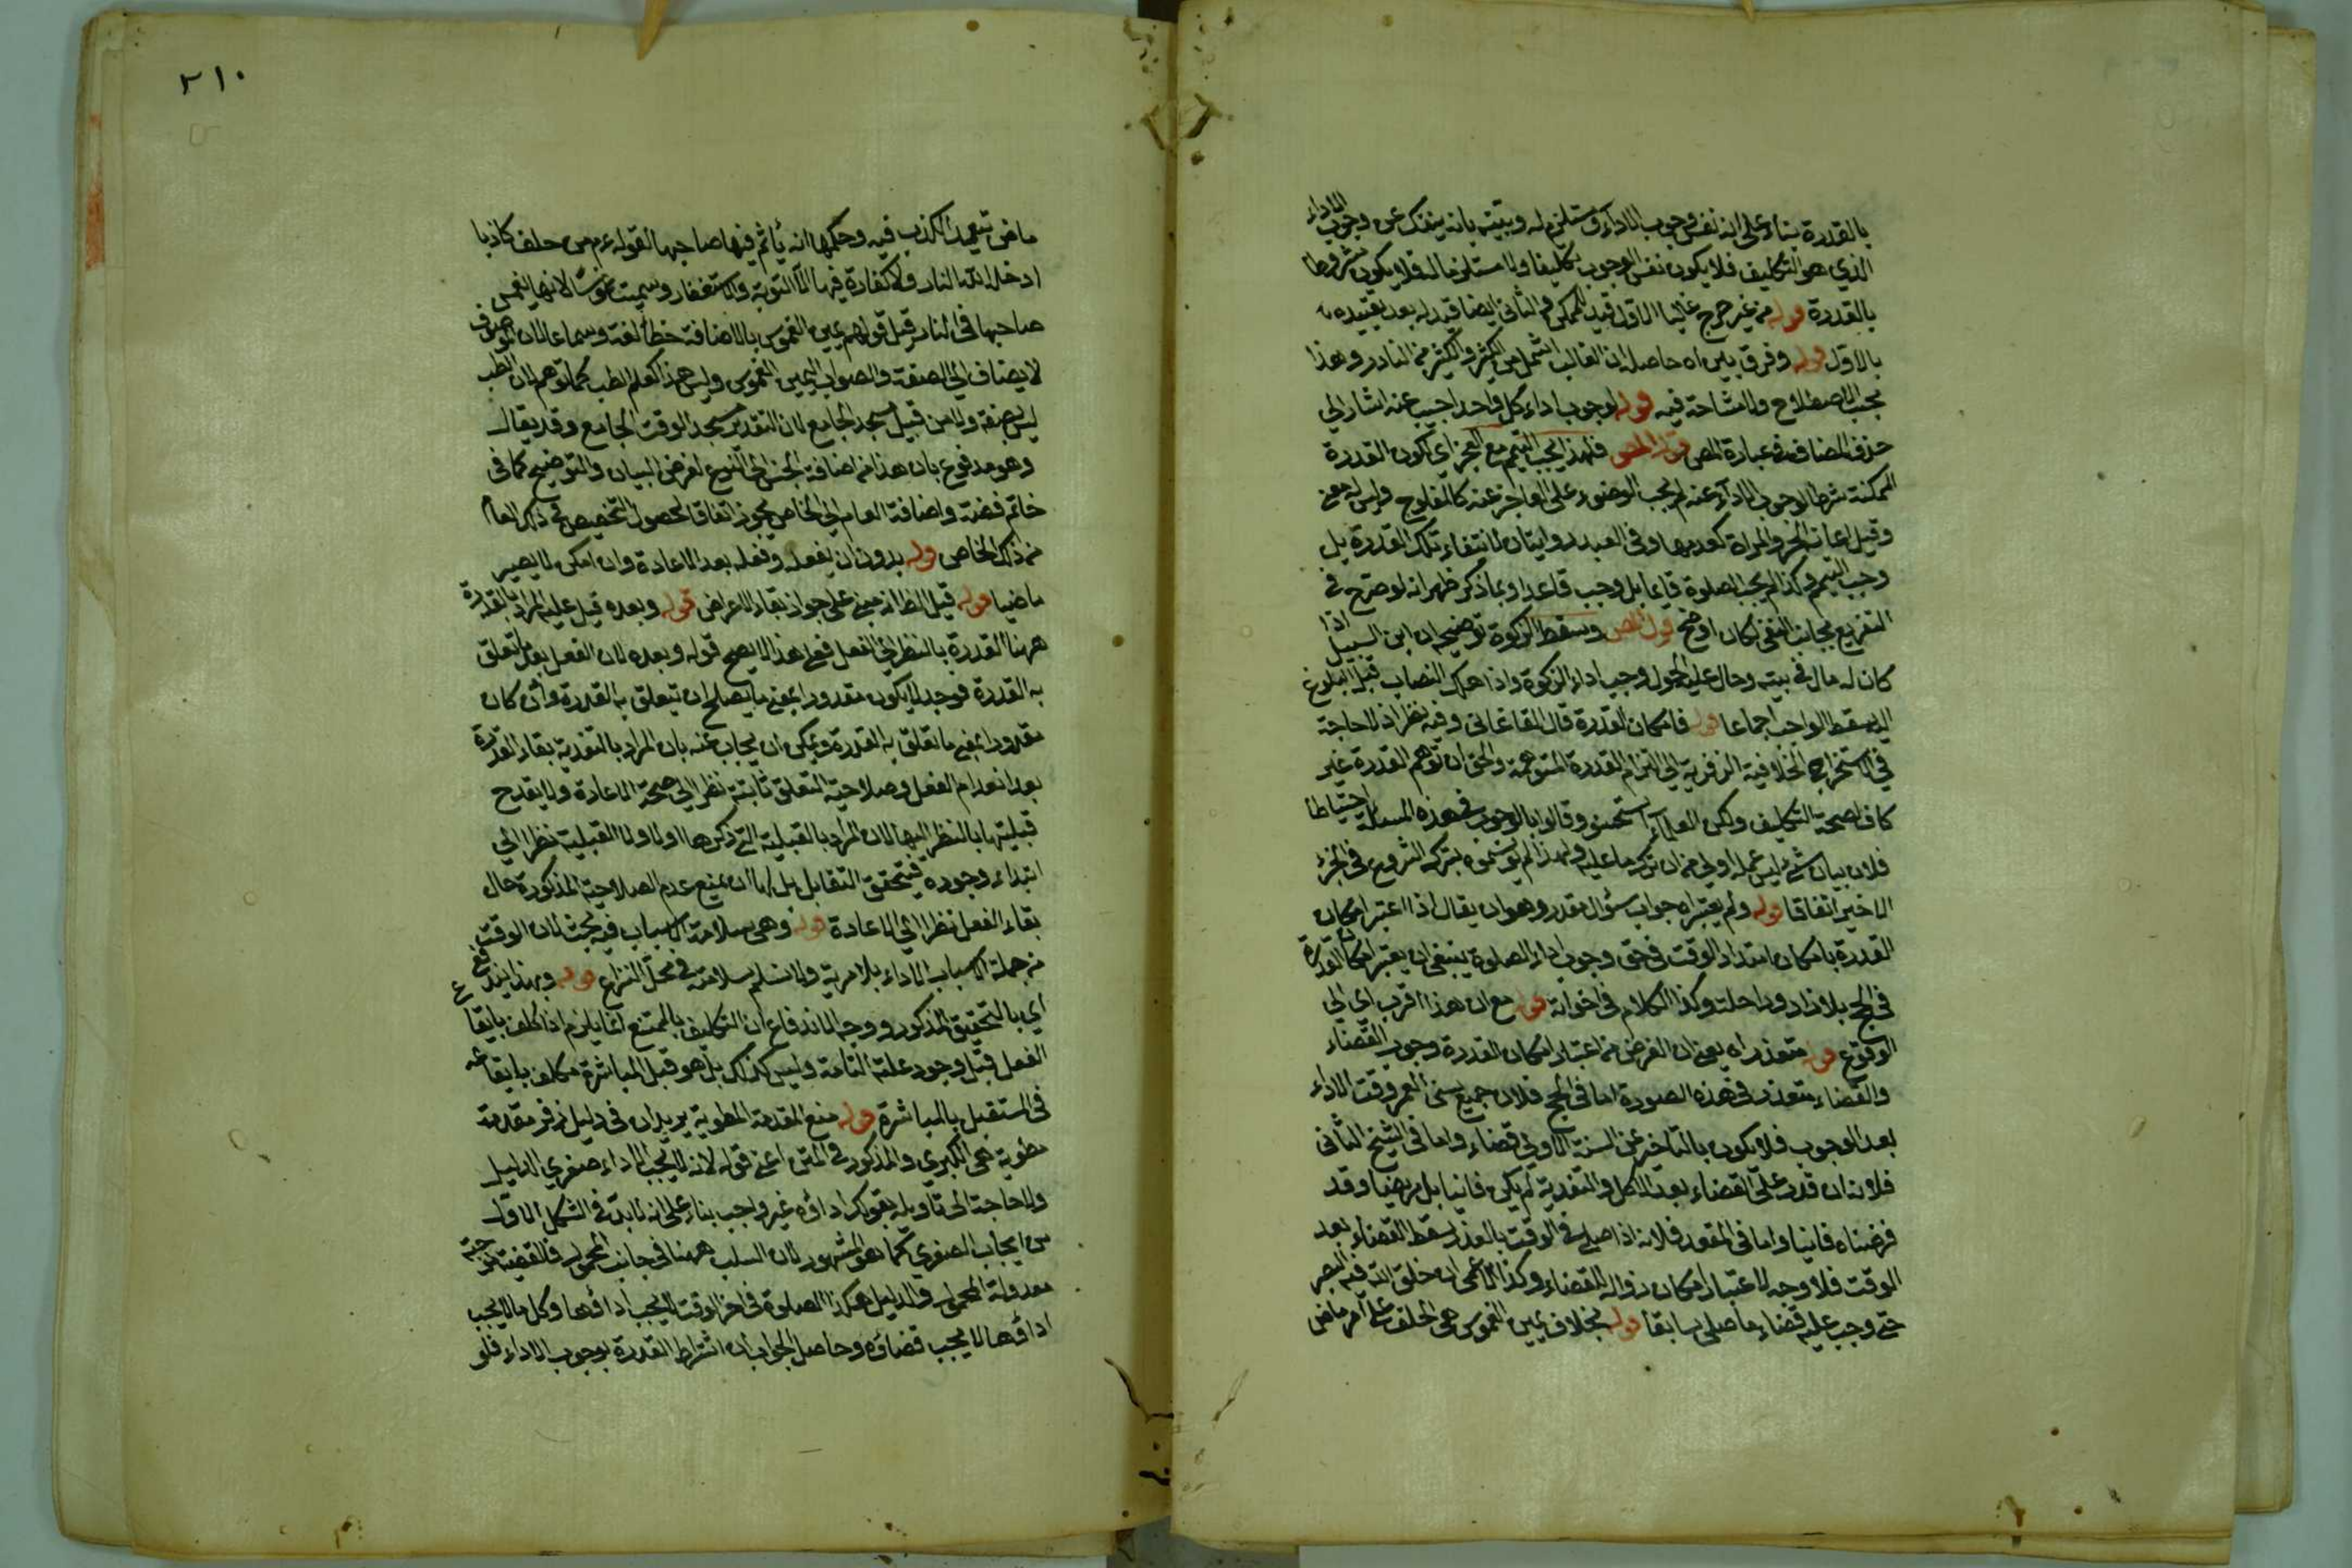 بالقدرة بناء على انه نفس وجوب الاداء او مستلزم له وبيّنه بانه ينفك عن وجوب الاداء
الذي هو التكليف فلا يكون نفس الوجوب تكليفا ولا مستلزما له فلا يكون مشروطا
بالقدرة قوله من غير حرج غالبا الاول قيد للممكن والثاني ايضا قيد له بعد تقييده
بالاول قوله وفرق بين اه حاصله ان الغالب اشمل من الكثير والكثير من النادر وهذا
بحسب الاصطلاح ولا مشاحة فيه قوله لوجوب اداء كل واحد اجيب عنه اشار الى
حذف المضاف في عبارة المص قول المص فلهذا يجب التيمم مع العجز اى لكون القدرة
الممكنة شرطا لوجوب الاداء عنه لم يجب الوضوء على العاجز عنه كالمفلوج وليس له معين
وقيل اعانة الحر والمراة كعدمها وفى العبد روايتان لانتفاء تلك القدرة بل
وجب التيمم وكذا لم يجب الصلوة قائما بل وجب قاعدا وبما ذكر ظهر انه لو صرح في
التفريع بجانب النفي لكان اوضح قول المص وسقط الزكوة توضيحه ان ابن السبيل اذا
كان له مال في بيته وحال عليه الحول وجب اداء الزكوة واذا هلك النصاب قبل البلوغ
اليه سقط الواجب اجماعا قوله فامكان القدرة قال القاغانى وفيه نظر اذ لا حاجة
في استخراج الخلافية الزفرية الى التزام القدرة المتوهمة والحق ان توهم القدرة غير
كاف لصحة التكليف ولكن العلماء استحسنوا وقالوا بالوجوب في هذه المسئلة احتياطا
فلان بيان شئ ليس عمله اولى من ان ترك ما عليه ولهذا لم يؤثموه بتركه الشروع في الجزء
الاخير اتفاقا قوله ولم يعتبر اه جواب سؤال مقدر وهو ان يقال اذا اعتبر امكان
القدرة بامكان امتداد الوقت في حق وجوب اداء الصلوة ينبغي ان يعتبر امكان القدرة
في الحج بلا زاد وراحلة وكذا الكلام في اخواته قوله مع ان هذا اقرب اى الى
الوقوع قوله متعذر اه يعني ان الغرض من اعتبار امكان القدرة وجوب القضاء
والقضاء متعذر في هذه الصورة اما في الحج فلان جميع سنى العمر وقت الاداء
بعد الوجوب فلا يكون بالتاخير عن السنة الاولى قضاء واما في الشيخ الفانى
فلانه ان قدر على القضاء بعد الاكل والتفدية لم يكن فانيا بل مريضا وقد
فرضناه فانيا واما في المقعد فلانه اذا صلى في الوقت بالعذر سقط القضاء بعد
الوقت فلا وجه لاعتبار امكان زواله للقضاء وكذا الاعمى ان خلق الله فيه البصر
حتى وجب عليه قضاء ما صلى سابقا قوله بخلاف يمين الغموس هى الحلف على امر ماض
٢١٠
ماض تيعمد الكذب فيه وحكمها انه يأثم فيها صاحبها لقوله عم من حلف كاذبا
ادخله الله النار ولا كفارة فيها الا التوبة والاستغفار وسميت غموسا لانها تغمس
صاحبها فى النار قيل قولهم يمين الغموس بالاضافة خطأ لغة وسماعا لان الموصوف
لا يضاف الى الصفة والصواب اليمين الغموس وليس هذا كعلم الطب كما توهم لان الطب
ليس بصفة ولا من قبيل مسجد الجامع لان التقدير مسجد الوقت الجامع وقد يقال
وهو مدفوع بان هذا من اضافة الجنس الى النوع لغرض البيان والتوضيح كما فى
خاتم فضة واضافة العام الى الخاص يجوز اتفاقا لحصول التخصيص في ذكر العام
من ذلك الخاص قوله بدون ان يفعله وفعله بعد الاعادة وان امكن لا يصير
ماضيا قوله قيل الظ انه مبني على جواز بقاء الاعراض قوله وبعده قيل عليه المراد بالقدرة
ههنا القدرة بالنظر الى الفعل فعلى هذا لا يصح قوله وبعده لان الفعل بعد ما تعلق
به القدرة فوجد لا يكون مقدورا بمعنى ما يصلح ان تيعلق به القدرة وان كان
مقدورا بمعنى ما تعلق به القدرة ويمكن ان يجاب عنه بان المراد بالبعدية بقاء القدرة
بعد انعدام الفعل وصلاحية التعلق ثابتة نظرا الى صحة الاعادة ولا يقدح
قبليتها بالنظر اليها لان المراد بالقبلية التي ذكرها اولا ولا القبلية نظرا الى
ابتداء وجوده فيتحقق التقابل بل لنا ان نمنع عدم الصلاحية المذكورة حال
بقاء الفعل نظرا الى الاعادة قوله وهى سلامة الاسباب فيه بحث لان الوقت
من جملة اسباب الاداء بلا مرية ولا نسلم سلامته في محل النزاع قوله وبهذا يندفع
اي بالتحقيق المذكور ووجه الاندفاع ان التكليف بالممتنع انما يلزم اذا كلف بايقاع
الفعل قبل وجود علته التامة وليس كذلك بل هو قبل المباشرة مكلف بايقاعه
فى المستقبل بالمباشرة قوله منع المقدمة المطوية يريد ان فى دليل زفر مقدمة
مطوية هى الكبري والمذكور في المتن اعنى قوله لانه لا يجب الاداء صغري الدليل
ولا حاجة الى تاويله بقولك اداؤه غير واجب بناء على انه لا بد في الشكل الاول
من ايجاب الصغري كما هو المشهور لان السلب ههنا في جانب المحمول فالقضية موجبة
معدولة المحمول والدليل هكذا الصلوة فى اخر الوقت لا يجب اداؤها وكل ما لا يجب
اداؤها لا يجب قضاؤه وحاصل الجواب ان اشتراط القدرة لوجوب الاداء فلو